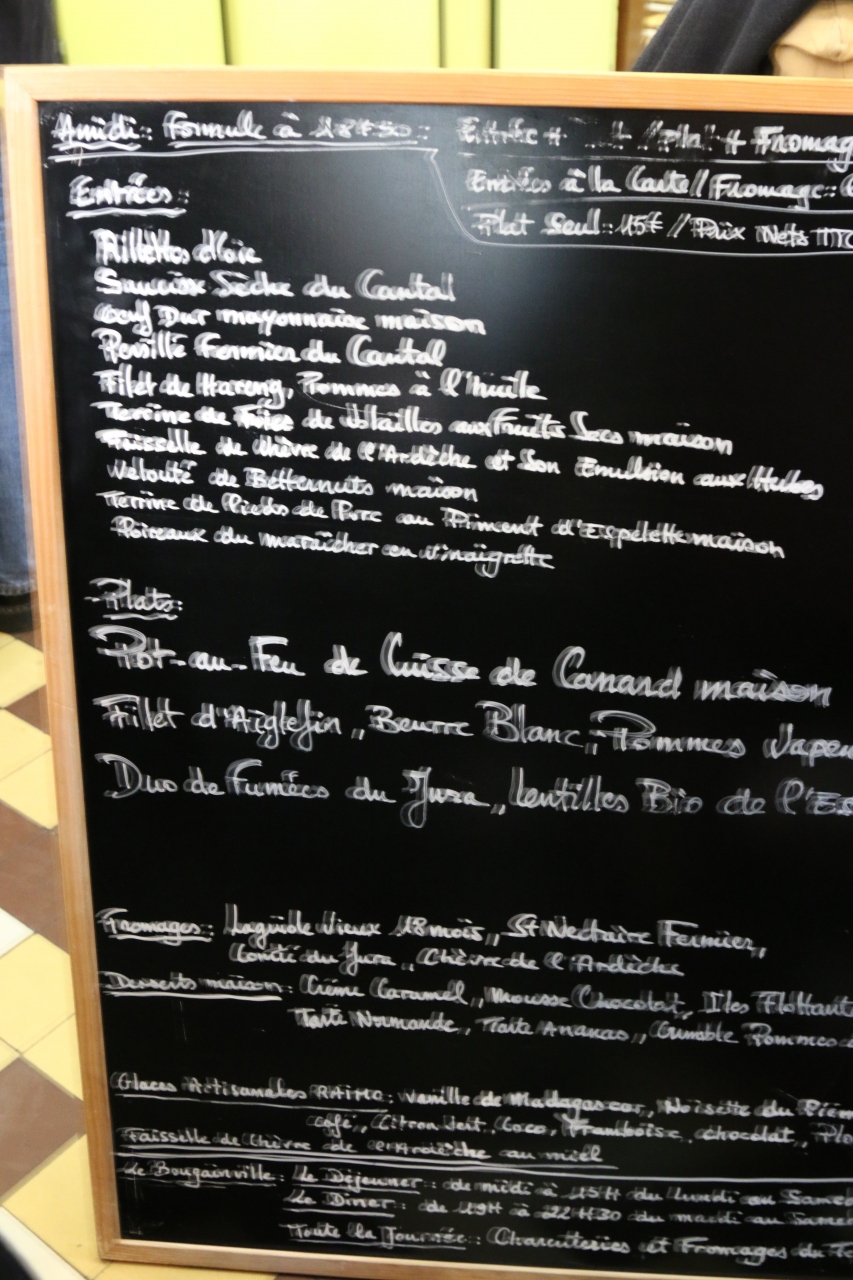 Amidi: Formule à 18€50: Entrée + Plat + Fromag
Entrées à la Carte // Fromage::
Plat Seul: 15€ // Prix Nets TTC
Entrées:
Rillettes d'Oie
Saucisse Sèche du Cantal
Oeuf Dur mayonnaise maison
Persillé Fermier du Cantal
Filet de Hareng, Pommes à l'huile
Terrine de Foies de Volailles aux Fruits Secs maison
Faisselle de Chèvre de l'Ardèche et Son Emulsion aux Herbes
Velouté de Betternuts maison
Terrine de Pieds de Porc au Piment d'Espelette maison
Poireaux du maraîcher en vinaigrette
Plats:
Pot-au-Feu de Cuisse de Canard maison
Fillet d'Aiglefin,, Beurre Blanc,, Pommes Vapeu
Duo de Fumées du Jura,, lentilles Bio de l'Es
Fromages: Laguiole Vieux 18 mois,, St Nectaire Fermier,
Comté du Jura,, Chèvre de l'Ardèche
Desserts maison: Crème Caramel,, Mousse Chocolat, Iles Flottant
Tarte Normande, Tarte Ananas,, Crumble Pommes
Glaces Artisanales RAIMO: Vanille de Madagascar,, Noisette du Piém
Café,, Citron Vert, Coco, Framboise, chocolat,,
Faisselle de Chèvre de l'Ardèche au miel
Le Bougainville: Le Déjeuner: de midi à 15H du lundi au Same
Le Dîner: de 19H à 22H30 du mardi au Same
Toute la Journée: Charcuteries et Fromages du